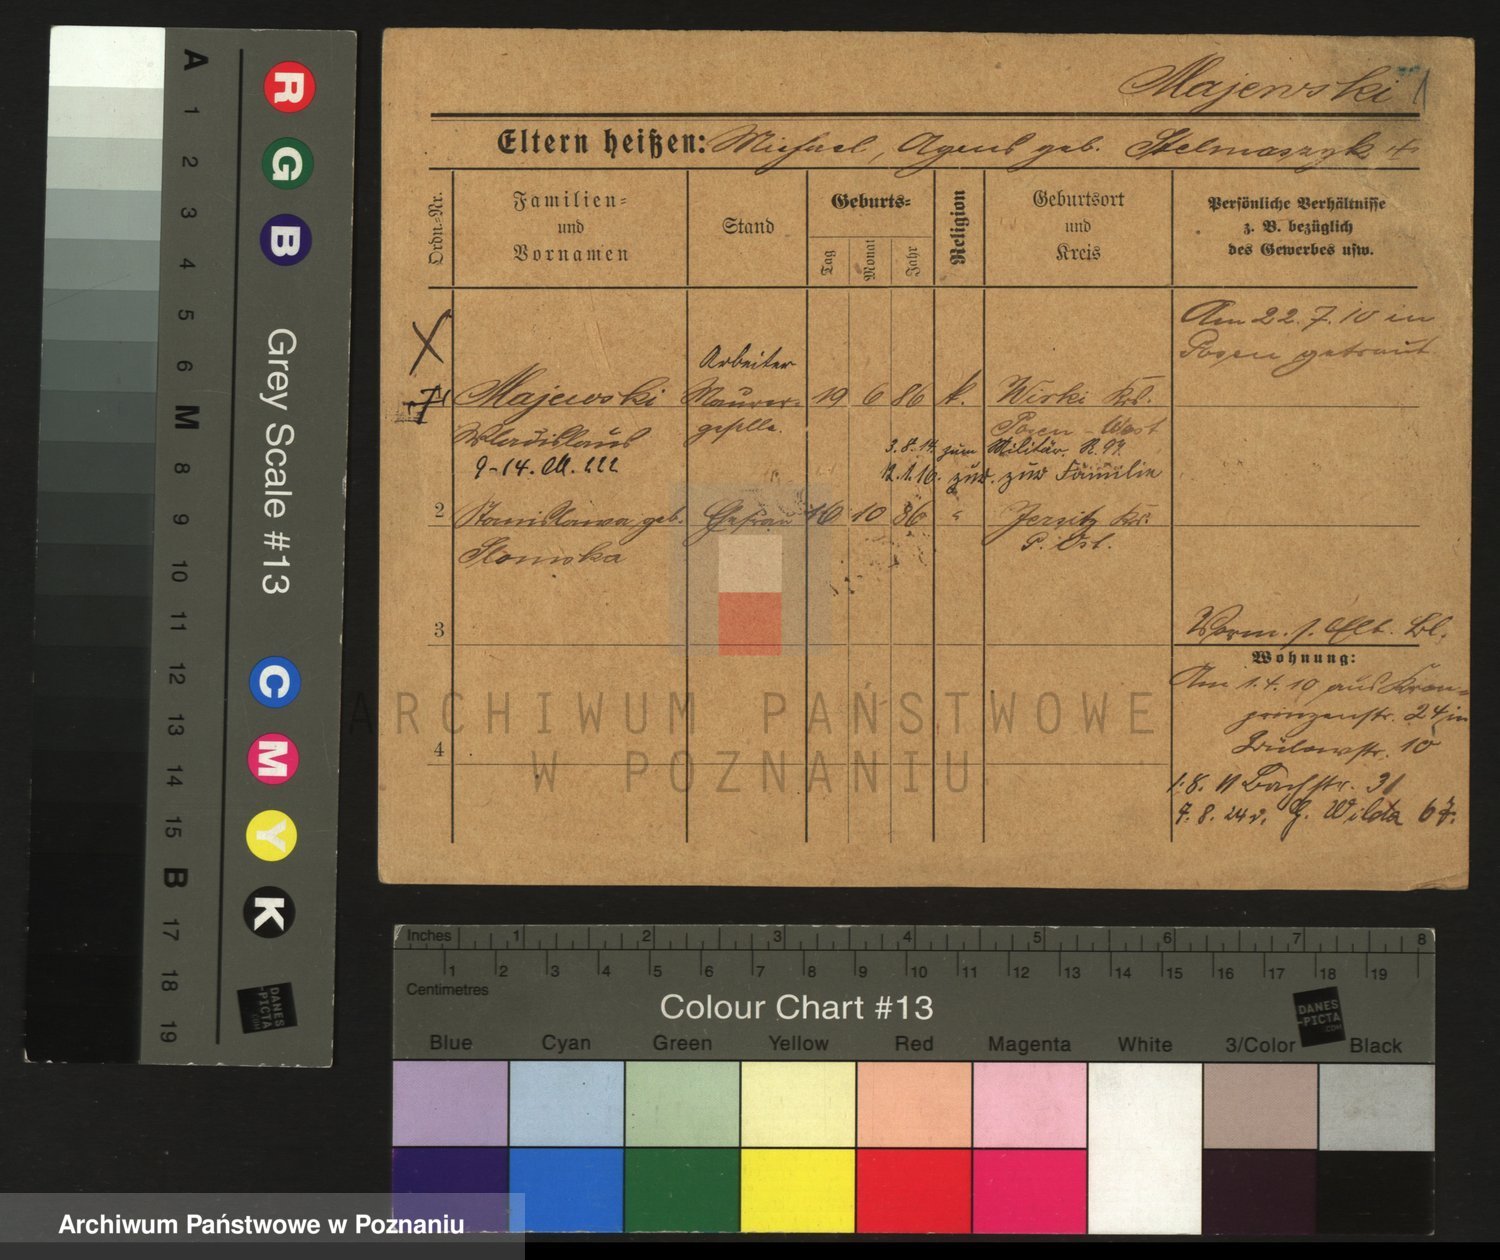 Majewski
Eltern heißen: Michael, Agnes geb. Stelmaszyk
Ordn.=Nr.
Familien=
und
Vornamen
Stand
Geburts=
Tag
Monat
Jahr
Religion
Geburtsort
und
Kreis
Persönliche Verhältnisse
z. B. bezüglich
des Gewerbes usw.
Am 22. 7. 10 in
Posen getraut
Arbeiter
Majewski Maurer- 19 6 86 k. Wirki Krs.
Wladislaus geselle. Posen-West
3.8.14 zum Militär. R.
9-14. M. 222
12.1.16. zur Familie
2 Stanislawa geb. Ehefrau 16 10 86 " Jersitz Kr.
Slomska P. Ost.
3
Verm. s. Bl.
Wohnung:
Am 1.4.10 aus Kron-
prinzenstr. 24 in
Bülowstr. 10
1.8. 11 Bachstr. 31
7. 8. 24 v. G. Wilda 67.
4
ARCHIWUM PAŃSTWOWE
W POZNANIU
A 1 2 3 4 5 6 M 8 9 10 11 12 13 14 15 B 17 18 19
R G B
Grey Scale #13
C M Y K
DANES
-PICTA
.COM
Inches 1 2 3 4 5 6 7 8
1 2 3 4 5 6 7 8 9 10 11 12 13 14 15 16 17 18 19
Centimetres
Colour Chart #13
DANES
-PICTA
.COM
Blue Cyan Green Yellow Red Magenta White 3/Color Black
Archiwum Państwowe w Poznaniu